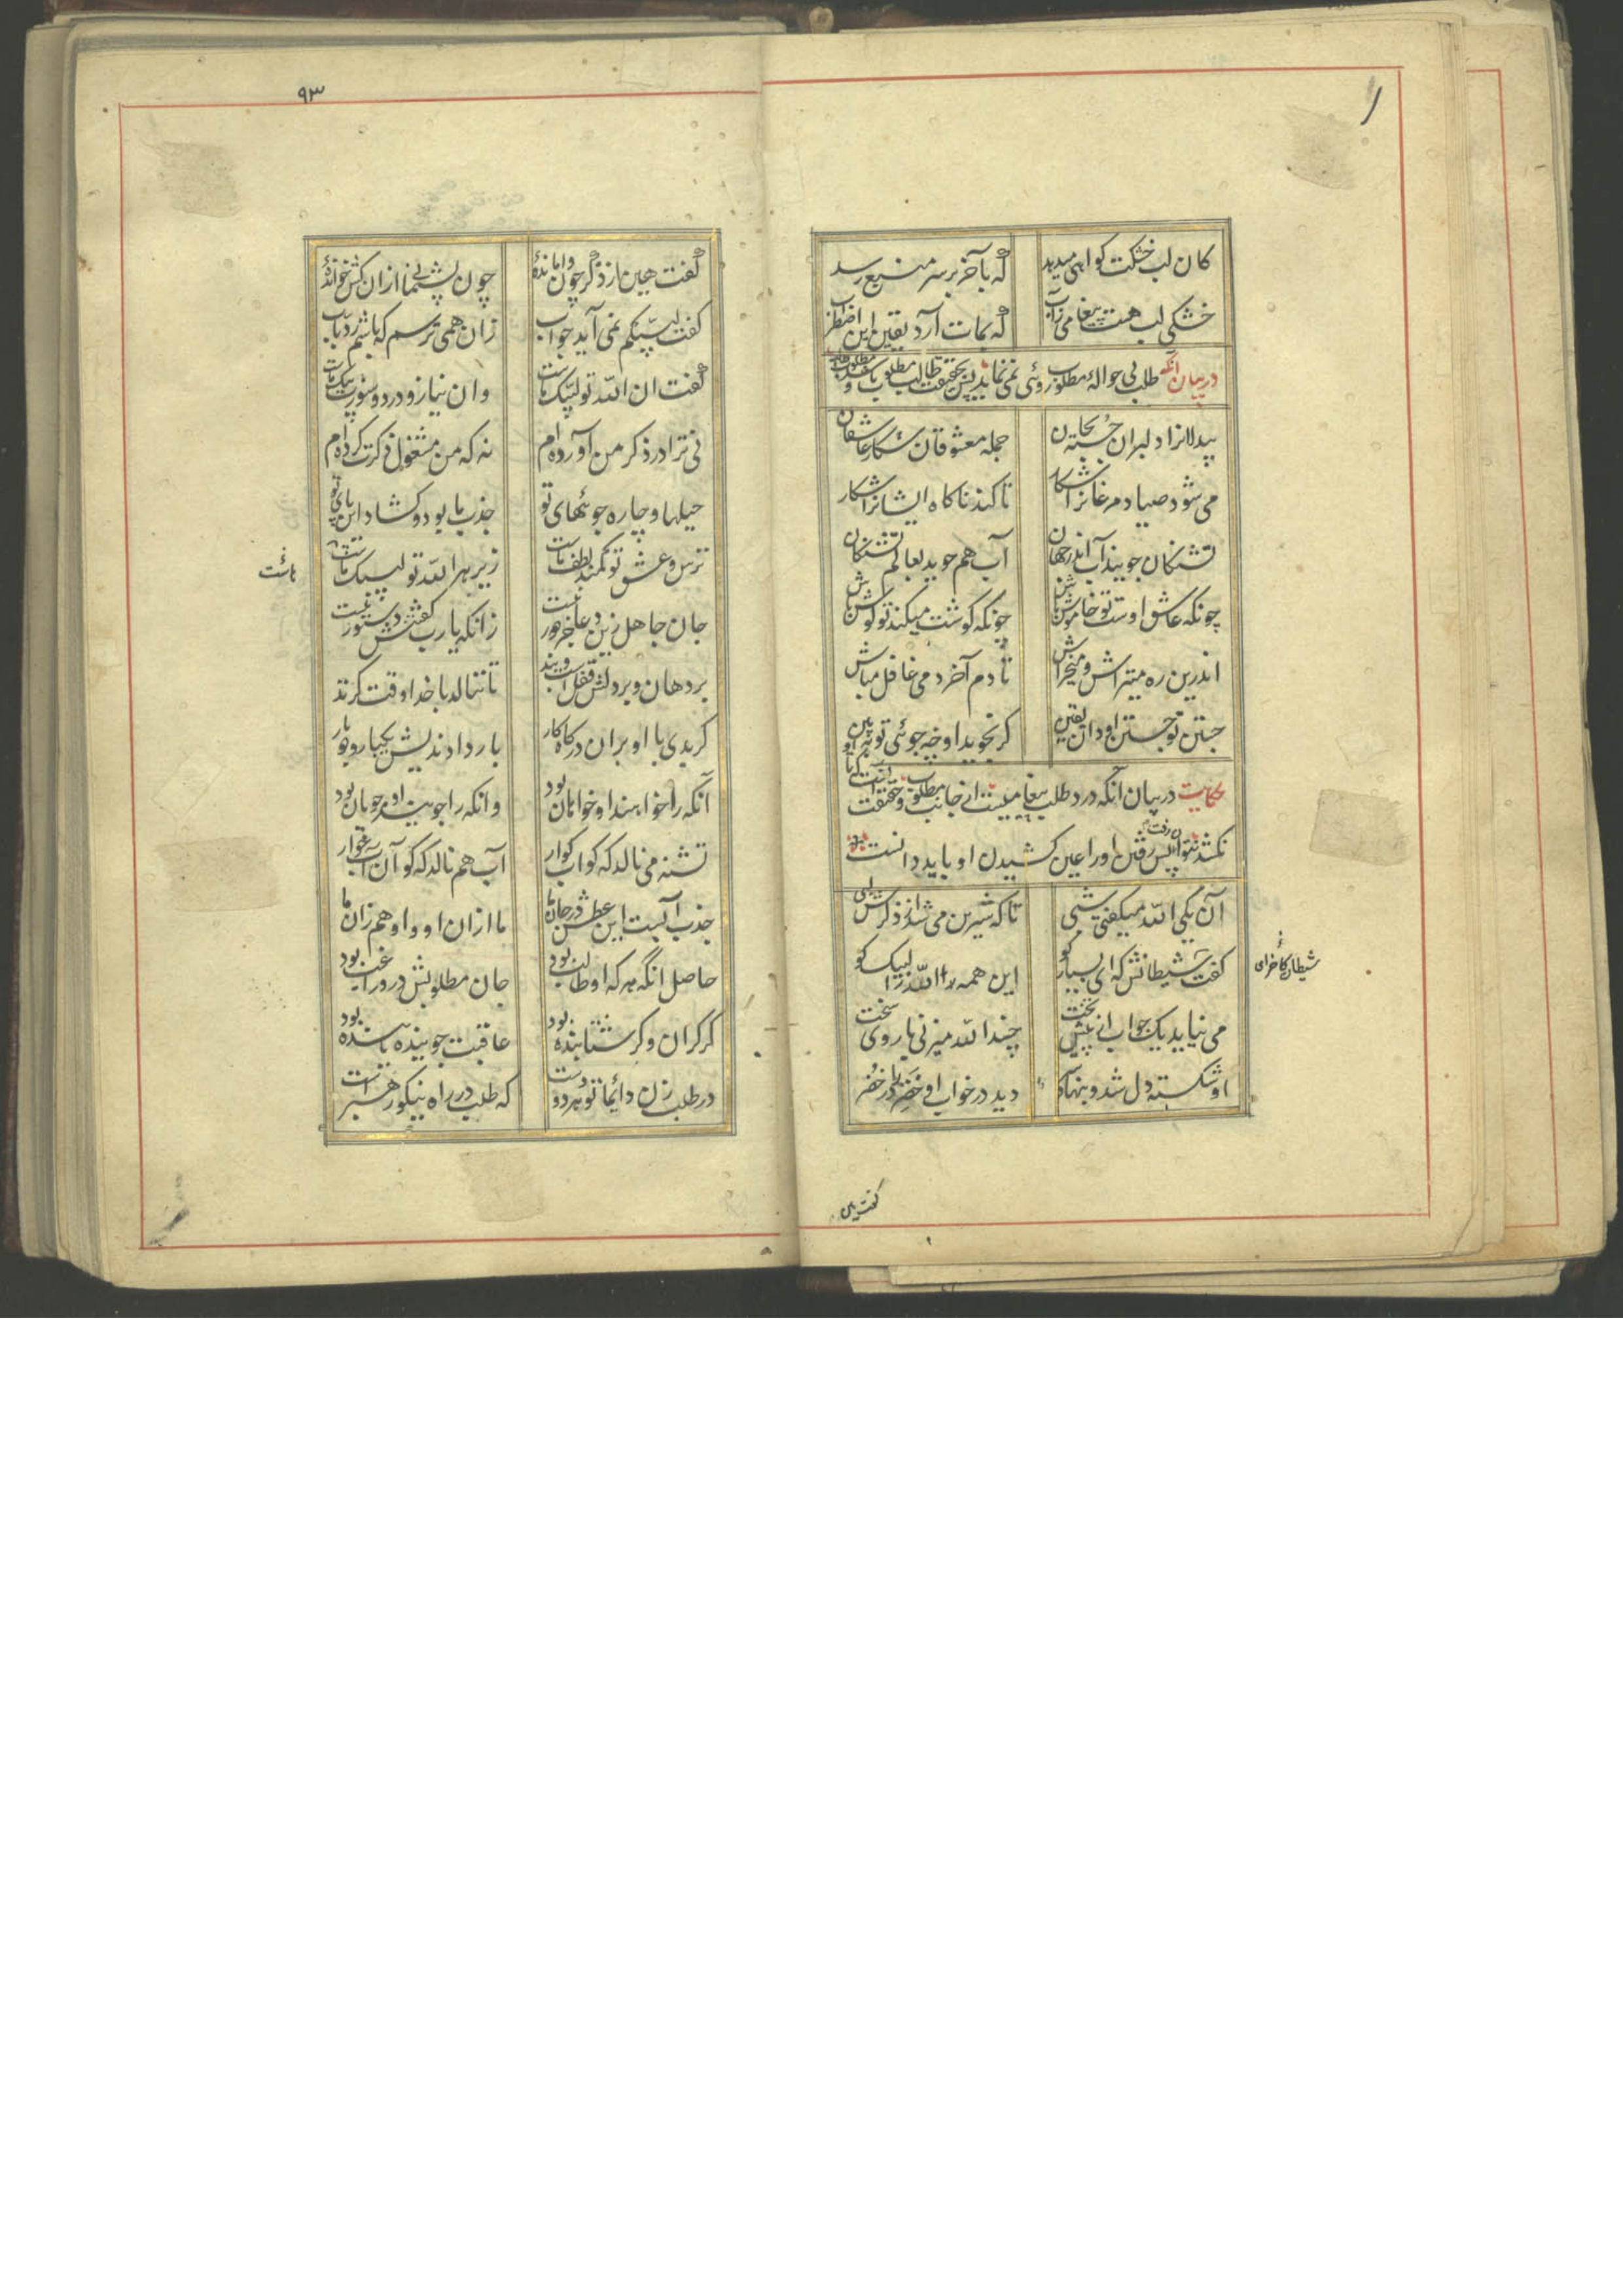 کان لب خشکت کواهی میدهد که بآخر بر سر منبع رسد
خشکی لب هست پیغامی زآب که بمات آرد یقین این اضطراب
در بیان آنکه طلب بی حوالهٔ مطلوب روئی نمی نماید پس بحقیقت طالب مطلوب باشد و
بیدلانرا دلبران جسته بجان جمله معشوقان شکار عاشقان
می شود صیاد مرغانرا شکار تا کند ناکاه ایشانرا شکار
تشنکان جویند آب اندر جهان آب هم جوید بعالم تشنکان
چونکه عاشق اوست تو خاموش باش چونکه کوشت میکند تو کوش باش
اندرین ره میتراش و میخراش تا دم آخر دمی غافل مباش
جستن تو جستن او دان یقین کر نجوید او چه جوئی تو ببین
حکایت در بیان آنکه درد طلب پیغامیست از جانب مطلوب و حقیقت آنست که تا او
نکشد نتوان رفت پس رفتن او را عین کشیدن او باید دانست
آن یکی الله میکفتی شبی تا که شیرین می شد از ذکرش لبی
کفت شیطانش که ای بسیار کو این همه الله را لبیک کو
شیطان کاخر ای
می نیاید یک جواب از پیش تخت چند الله میزنی با روی سخت
او شکسته دل شد و بنهاد سر دید در خواب او خضر را در خضر
کفت هین
۹۳
کفت هین از ذکر چون واماندهٔ چون پشیمانی ازان کش خواندهٔ
کفت لبیکم نمی آید جواب زان همی ترسم که باشم رد باب
کفت ان الله تو لبیک ماست وان نیاز و درد و سوزت پیک ماست
نی ترا در ذکر من آورده ام نه که من مشغول ذکرت کرده ام
حیلها و چاره جوئیهای تو جذب ما بود و کشاد این پای تو
ترس و عشق تو کمند لطف ماست زیر هر الله تو لبیک ماست
جان جاهل زین دعا جز دور نیست زانکه یارب کفتنش دستور نیست
بر دهان و بر دلش قفلست و بند تا ننالد با خدا وقت کزند
کر بدی با او بران درکاه کار بار دادندیش یکبار و دو بار
آنکه را خواهند او خواهان بود وانکه را جویند او جویان بود
تشنه می نالد که کو آب کوار آب هم نالد که کو آن آب خوار
جذب آبست این عطش در جان ما ما ازان او و او هم زان ما
حاصل آنکه هر که او طالب بود جان مطلوبش درو راغب بود
کر کران و کر شتابنده بود عاقبت جوینده یابنده بود
در طلب زن دائما تو هر دو دست که طلب در راه نیکو رهبرست